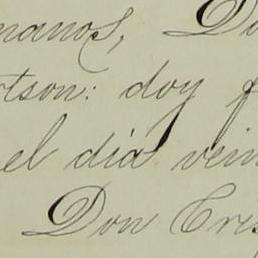 manos, D
tson: doy f
el dia vein
Don Cris